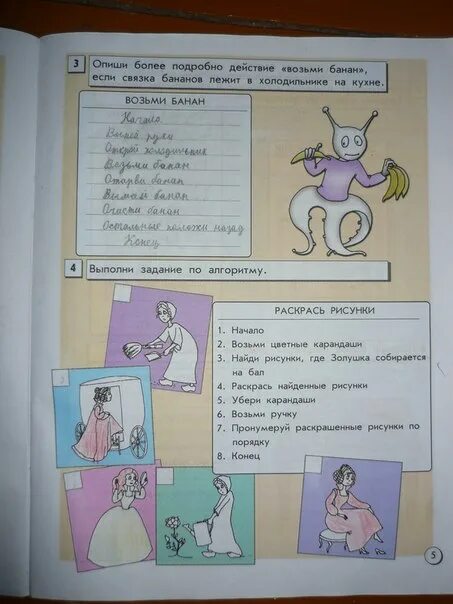 3 Опиши более подробно действие «возьми банан»,
если связка бананов лежит в холодильнике на кухне.
ВОЗЬМИ БАНАН
Начало
Вымой руки
Открой холодильник
Возьми банан
Оторви банан
банан
Очисти банан
Остальные положи назад
Конец
4 Выполни задание по алгоритму.
РАСКРАСЬ РИСУНКИ
1. Начало
2. Возьми цветные карандаши
3. Найди рисунки, где Золушка собирается
на бал
4. Раскрась найденные рисунки
5. Убери карандаши
6. Возьми ручку
7. Пронумеруй раскрашенные рисунки по
порядку
8. Конец
5